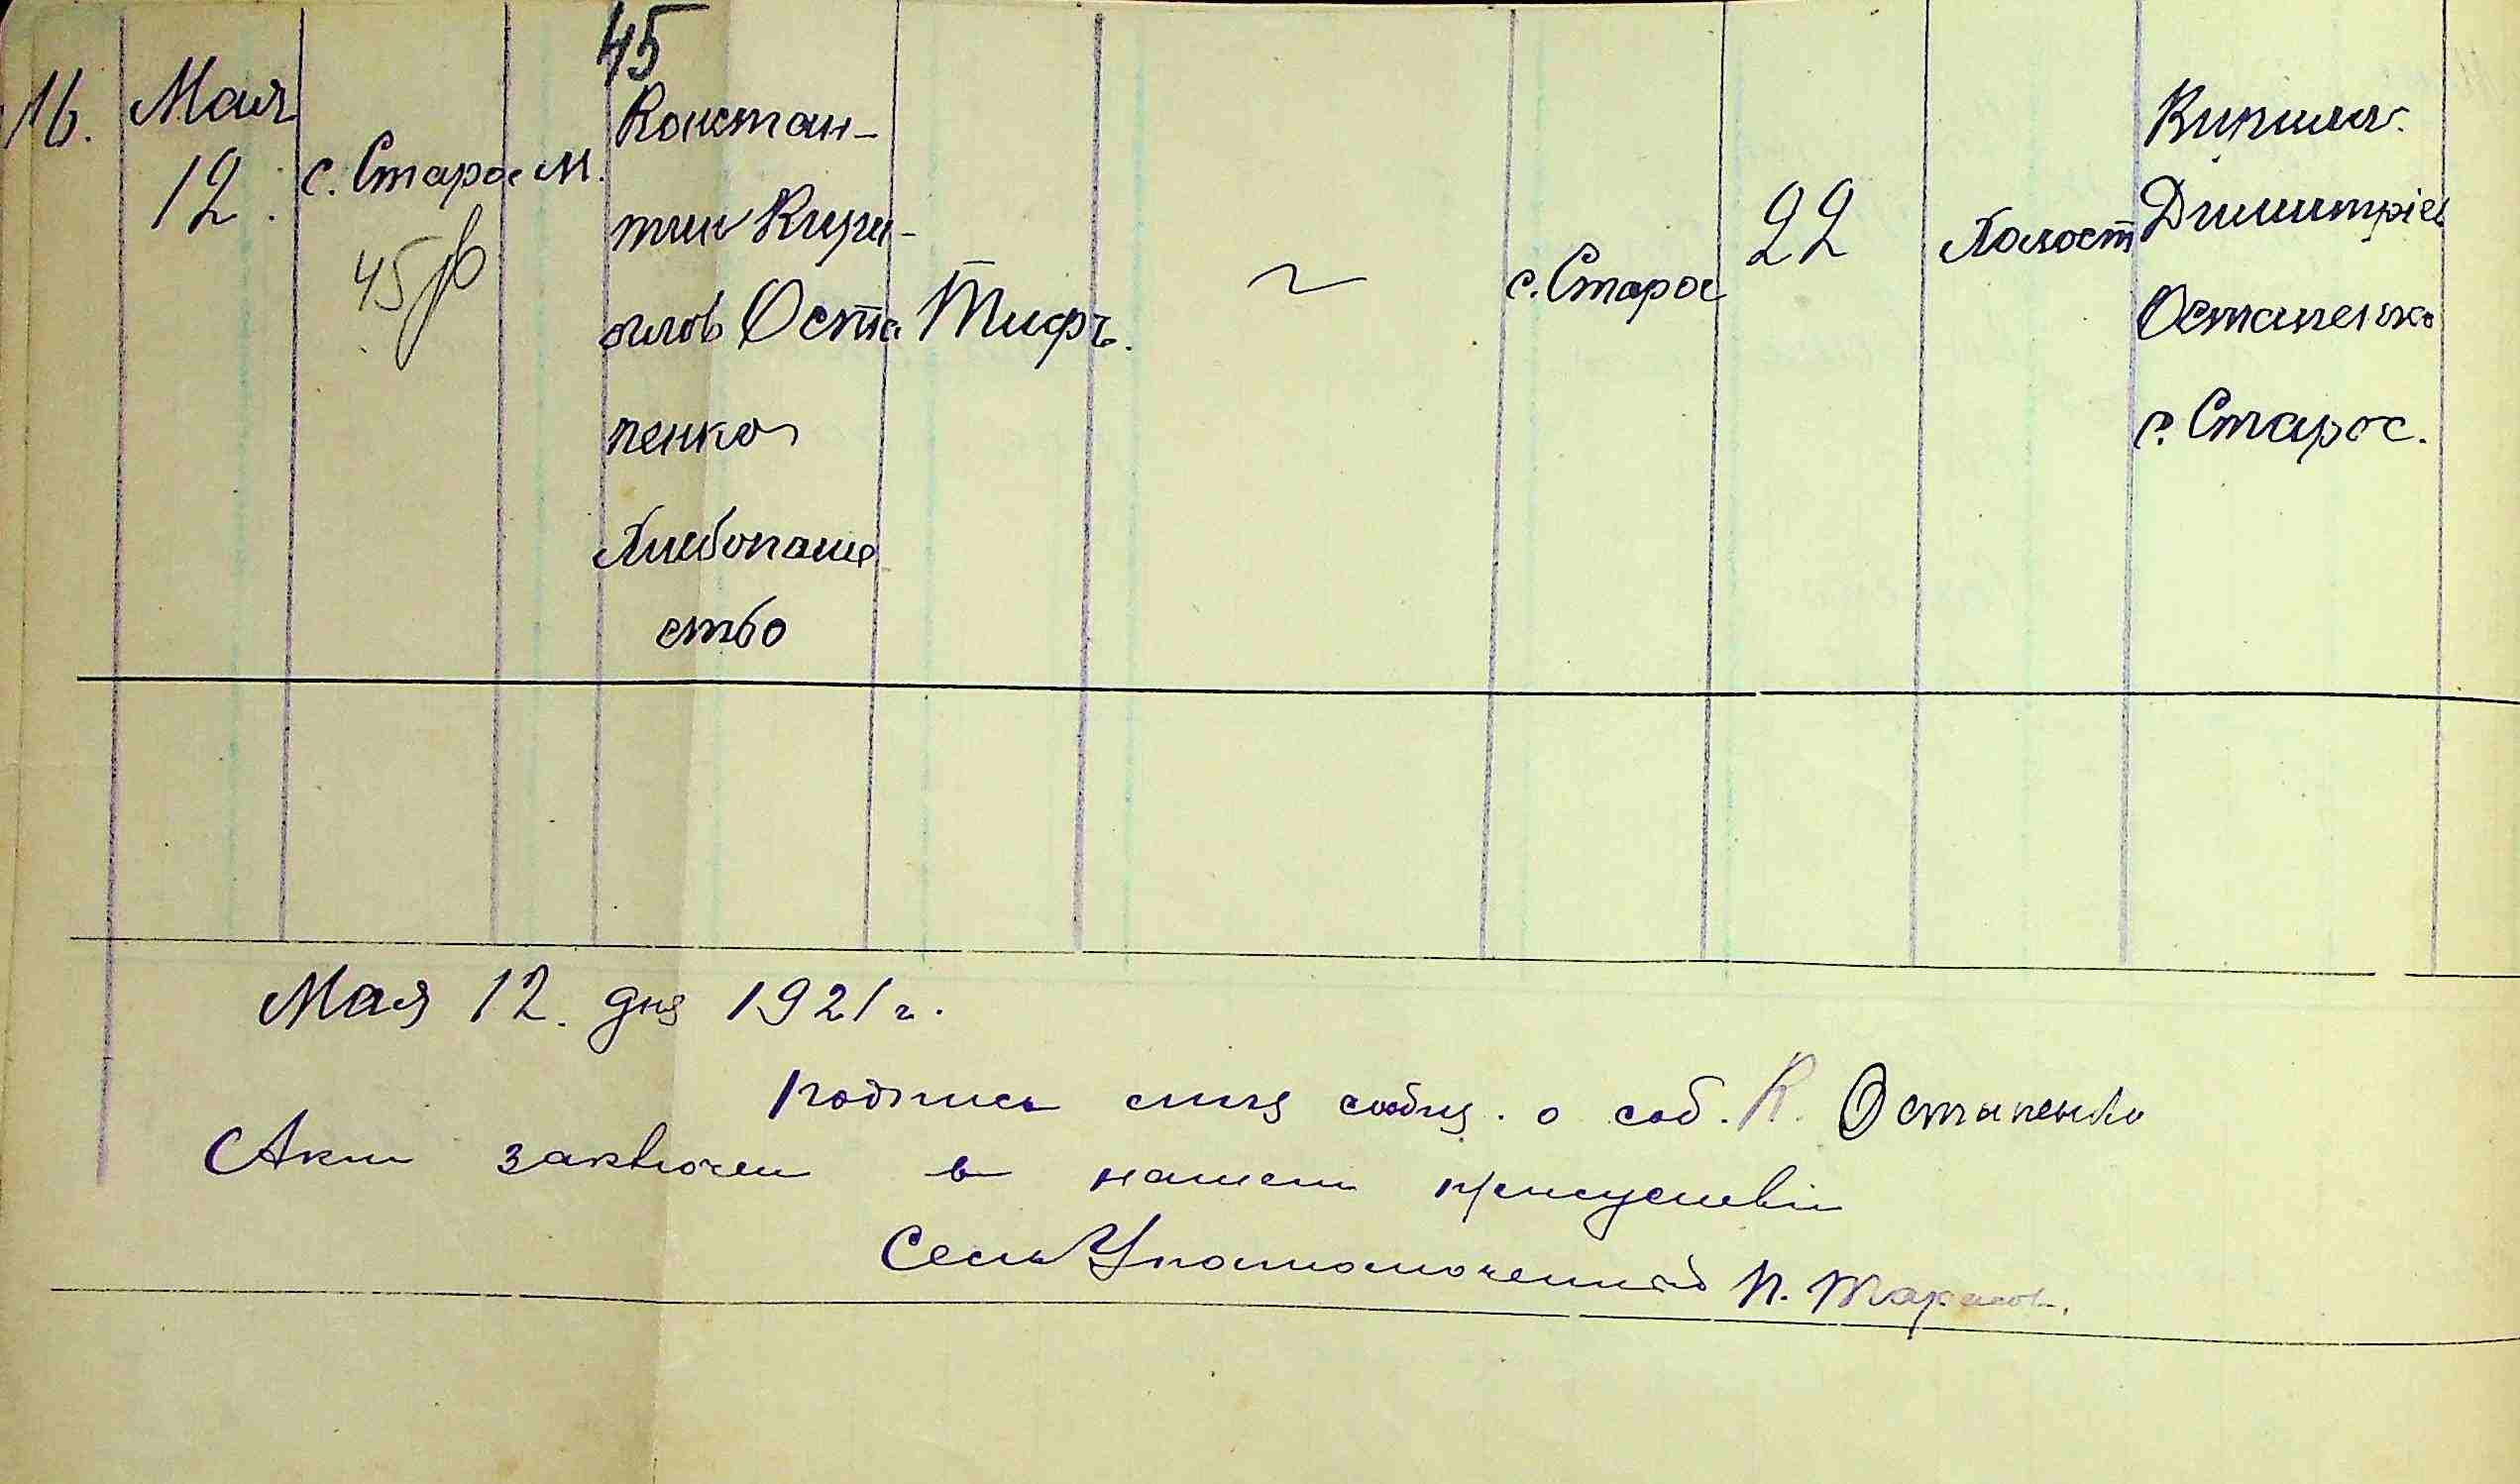 45
16.
Мая
12.
с. Старое
45
м.
Констан-
тин Кири-
лов Оста
пенко
Хлебопаше
ство
Тифъ.
с. Старое
22
Холост
Кирилл.
Димитріев
Остапенко
с. Старое.
Мая 12. дня 1921 г.
Подпись лица сообщ. о соб. К. Остапенко
Акт заключен в нашем присуствіи
Сель Уполномоченный П. Тарасов.